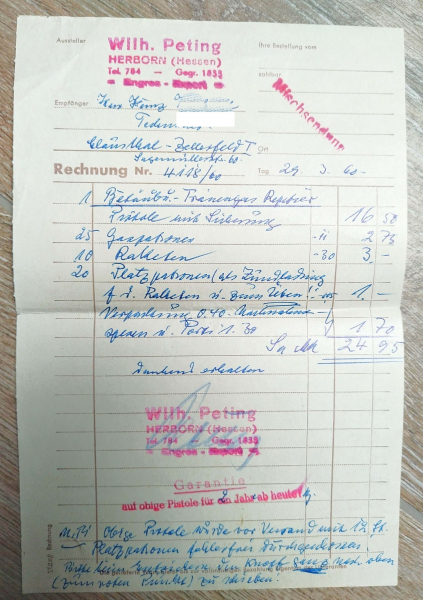 Aussteller
Wilh. Peting
HERBORN (Hessen)
Tel. 784 — Gegr. 1835
Engros - Export
Ihre Bestellung vom
zahlbar
Mischsendung
Empfänger
Herrn Heinz
Clausthal-Zellerfeld I
Ort
Rechnung Nr. 4118/60
Tag 29. 3. 60-
1 Betäub.- Tränengas Repetier
Pistole mit Sicherung 16 50
25 Gaspatronen -11 2 75
10 Raketen -30 3.-
20 Platzpatronen (als Zündladung
f. d. Raketen u. zum Üben! -05 1.-
Verpackung 0.40
spesen u. Porto 1.30 1 70
Sa 24 95
dankend erhalten
Wilh. Peting
HERBORN (Hessen)
Tel. 784 — Gegr. 1835
Engros - Export
Garantie
auf obige Pistole für 2 Jahre ab heute
Obige Pistole wurde vor Versand mit 12 St.
Platzpatronen fehlerfrei durchgeschossen
Bitte beim den Knopf ganz nach oben
(zum roten Punkt) zu schieben!